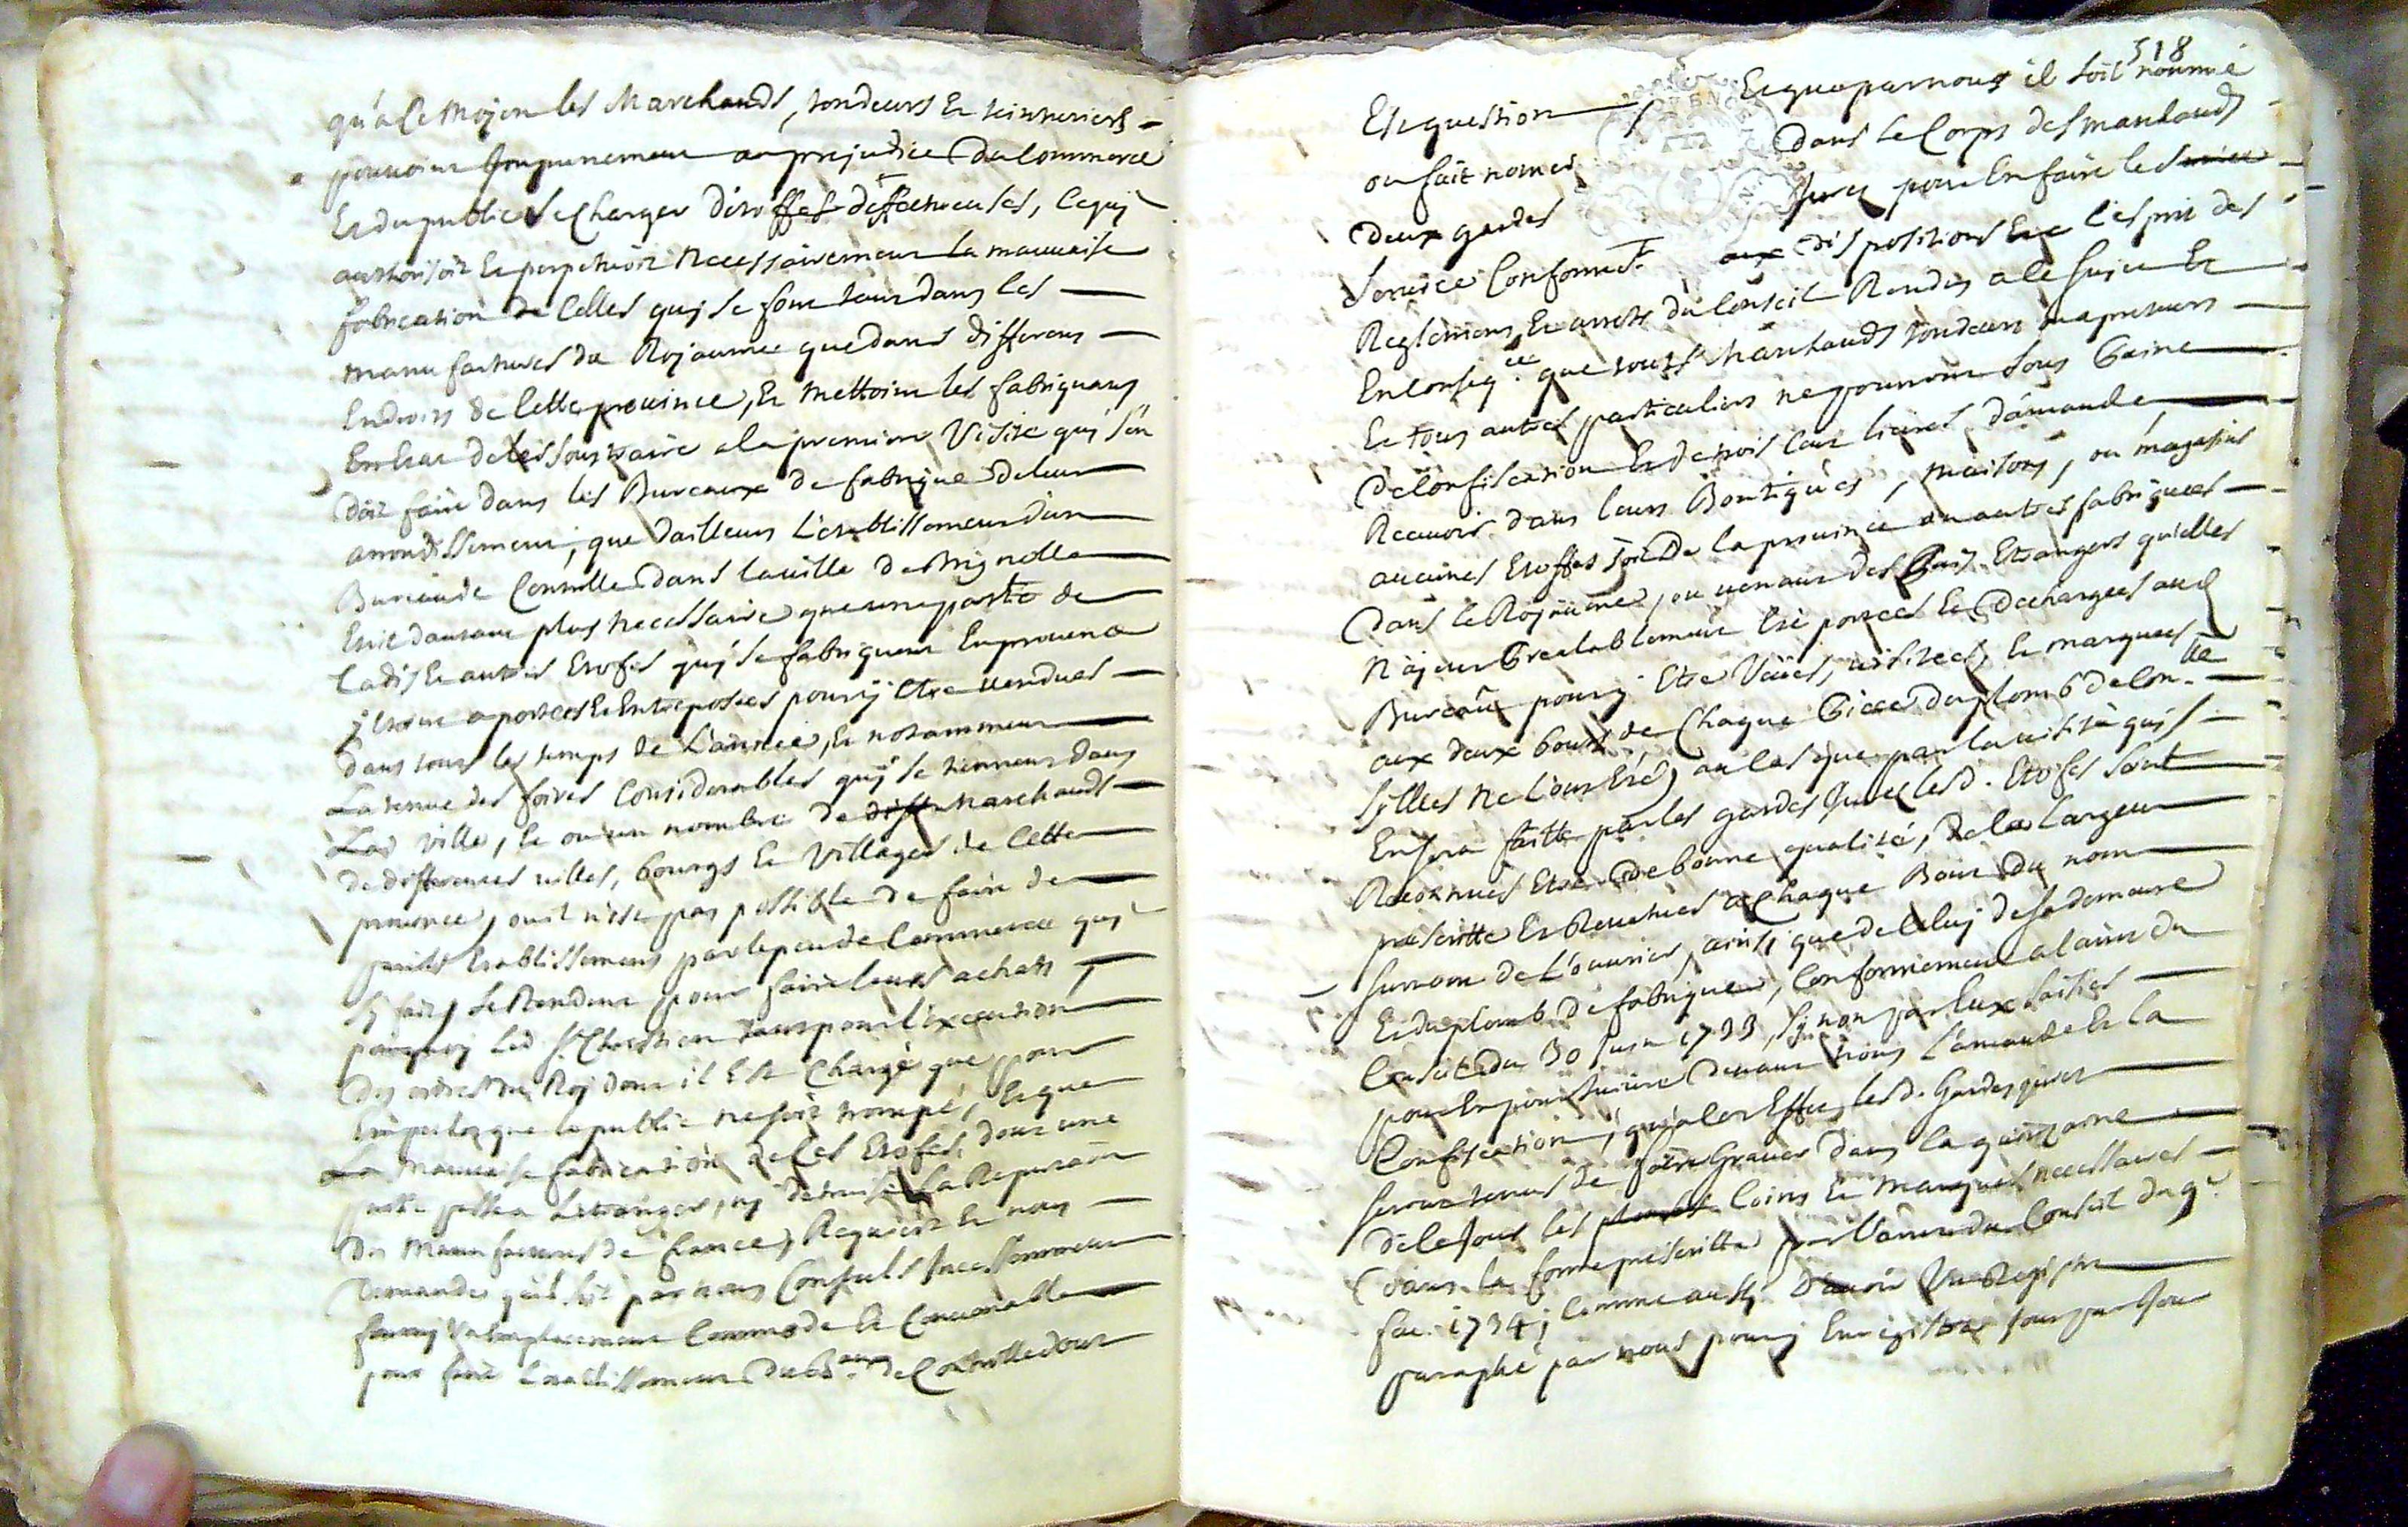 qu'a ce moyen les Marchands, tondeurs Et teinturiers
pouvoient Impunement au prejudice Du Commerce
Et du public Se Charger d'étoffes deffectueuses, Ce quy
authorisoit Et perpetuoit Necessairement la mauvaise
fabrication de Celles quy se font tant dans les
manufactures du Royaume que dans differens
Endroits de Cette province, Et mettoient les fabriquans
En Etat de les soustraire a la premiere Visite quy s'en
doit faire dans les Bureaux de fabrique de leur
arrondissement, que d'ailleurs L'etablissement d'un
Bureau de Controlle dans la ville de Brignolle
Est d'autant plus Necessaire que une partie de
Cadis Et autres Etofes quy se fabriquent En provence
y sont aportées Et Entreposées pour y Etre vendues
dans tous les temps de L'année, Et notamment
La tenue des foires Considerables quy se tiennent dans
Lad. ville, Et ou un nombre de marchands
de differentes villes, bourgs Et Villages de Cette
province, ou il n'est pas possible de faire de
pareils Etablissemens par le peu de Commerce quy
s'y fait, se Rendent pour faire leurs achats
pourquoy Led. Sr. Chrestien tant pour l'execution
des ordres du Roy dont il Est Chargé que pour
Empecher que le public ne soit trompé, Et que
La mauvaise fabrication de Ces Etofes, dont une
partie passe a Letranger, ny detruise La Reputation
des Manufactures de france, Requiert Et nous
demande qu'il soit par nous Consuls Incessamment
fourny Un Emplacement Commode Et Convenable
pour faire L'etablissement dud. Bureau de Controlle dont
518
Est question, Et que par nous il soit nommé
ou fait nomer dans le Corps des marchands
deux gardes Jurez pour En faire le
Service Conformemt. aux dispositions Et a l'esprit des
Reglemens Et arrets du Conseil Rendus a Ce sujet Et
En Conseq.ce que touts Marchands tondeurs ou apreteurs
Et tous autres particuliers ne pourront sous Peine
de Confiscation Et de trois Cent livres d'amande
Recevoir dans leurs Boutiques, maisons, ou magasins
aucunes Etoffes soit De la province ou autres fabriques
Dans le Royaume, ou venant des Païs Etrangers qu'elles
N'ayent Prealablement Eté portées Et Dechargées aud.
Bureau pour y Etre Veües, visitées, Et marquées
aux deux bouts de Chaque Piece du plomb de Con.lle
Sy Elles ne l'ont Eté, au Cas que par la visite quy
En sera faitte par les gardes Jurez lesd. Etofes soient
Reconnues Etre de bonne qualité, De la Largeur
prescritte Et Revetues a Chaque Bout du nom
surnom de L'ouvrier, ainsy que de Celuy de sa demeure
Et du plomb de fabrique, Conformement a L'arrêt du
Conseil du 30 Juin 1733, Sy non par Eux saisies
pour En poursuivre devant Nous L'amande Et la
Confiscation, qu'a Cet Effet, lesd. Gardes jurez
seront tenus de faire Graver Dans la quinzaine
de Ce Jour les Coins Et Marques necessaires
Dans la forme prescritte par L'arrêt du Conseil du 9e.
1734, Comme aussy d'avoir Un Registre
paraphé par nous pour y Enregistrer jour par Jour